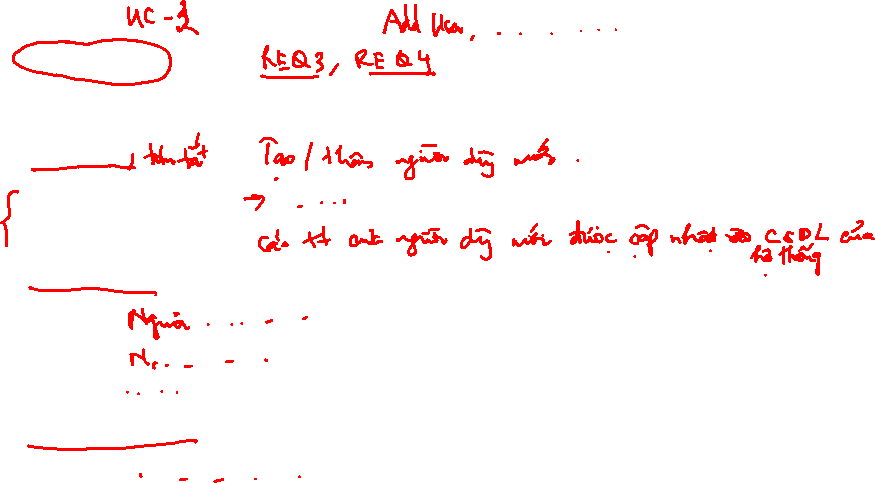 UC-1 Add User, . . . . . .
REQ3, REQ4
tóm tắt Tạo / thêm người dùng mới.
→ . . . .
các tt người dùng mới được cập nhật vào CSDL của
hệ thống
Người . . . . . .
N. . . . .
. . . .
. . . . .